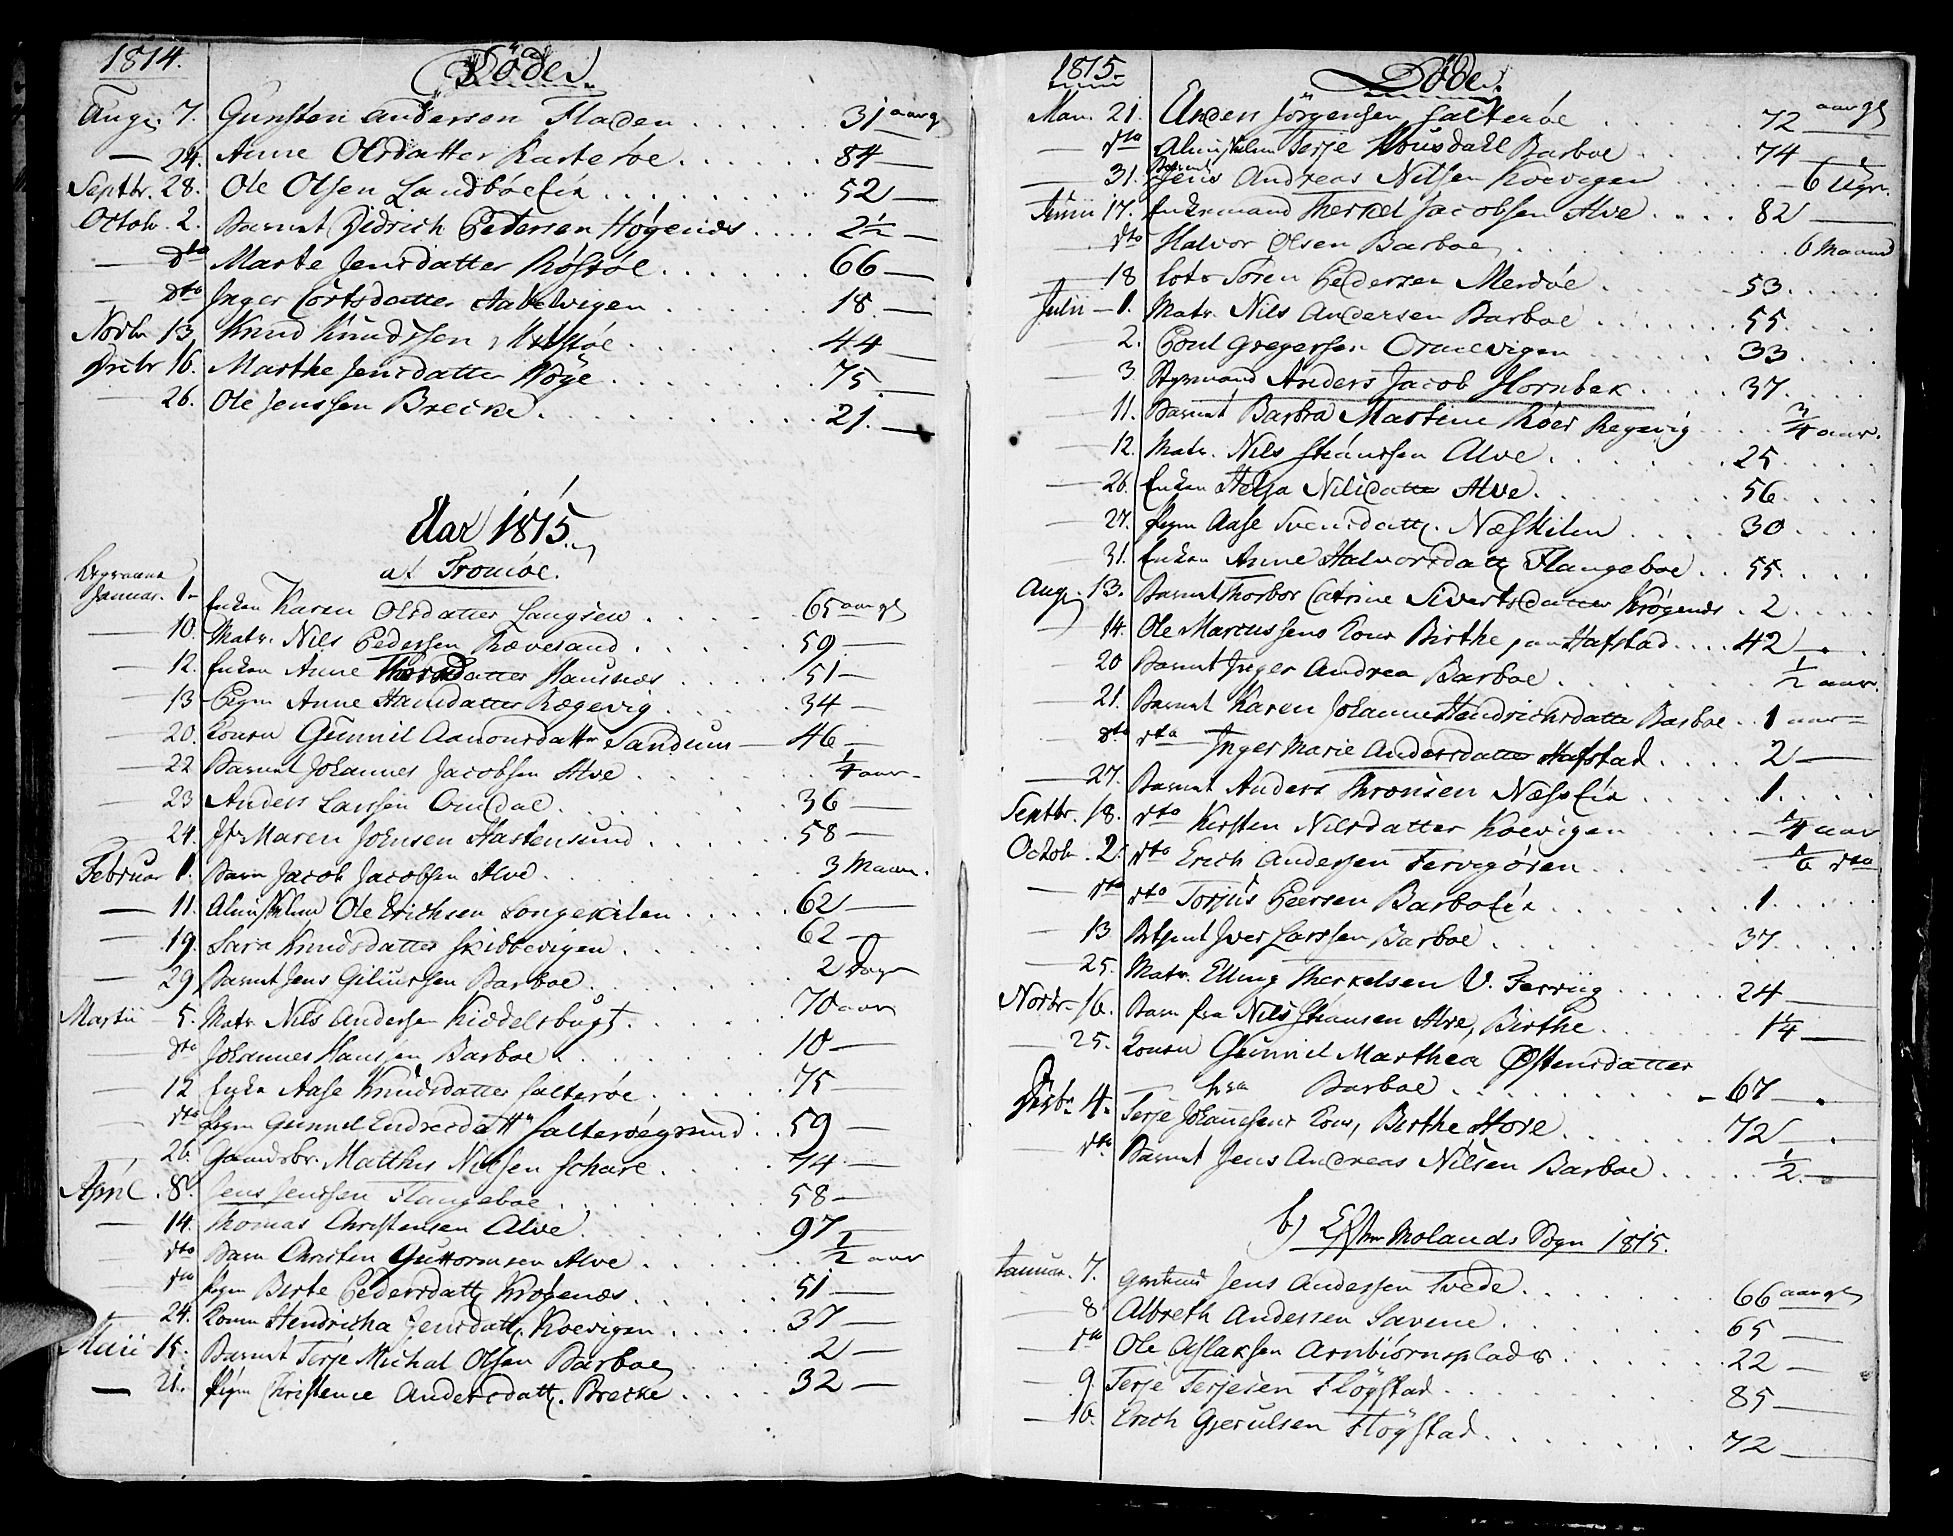 1814.
Döde.
Aug. 7. Gunsten Andersen Fladen 31 aar gl
— 24. Anne Olsdatter Karterøe 84 —
Septbr. 28. Ole Olsen Landbøelia 52 —
Octob. 2. Barnet Didrich Pedersen Høgenæs 2½ —
— dto Marte Jensdatter Røstøl 66 —
— dto Inger Cortsdatter Aabelvigen 18 —
Novbr 13. Knud Knudssen 44 —
Decbr 16. Marthe Jensdatter Röye 75 —
26. Ole Jenssen Brecke 21. —
Aar 1815.
at Tromöe.
Januar. 1. Enken Karen Olsdatter Langsew 65 aar gl
— 10. Matr. Nils Pedersen Rævesand 59 —
— 12. Enken Anne Thorsdatter Hausnæs 51 —
— 13 Pigen Anne Hansdatter Rægevig 34 —
— 20. Konen Gunnil Aanonsdattr Sandum 46 —
— 22 Barnet Johannes Jacobsen Alve ¼ aar —
— 23 Anders Larssen Omdal 36 —
— 24. Maren Johnsen Hastensund 58 —
Februar 1. Barn Jacob Jacobsen Alve 3 Maan.
— 11. Almislem Ole Erichsen Songekilen 62 —
— 19. Sara Knudsdatter Skidbevigen 62 —
— 29 Barnet Jens Giliursen Barboe 2 Dage
Martii 5. Matr Nils Andersen Kiddelsbugt 70 aar
dto Johannes Hansen Barboe 10 —
— 12 Enke Aase Knudsdatter Salterøe 75 —
— dto Pigen Gunnel Endresdattr Salterøegrund 59 —
— 26. Gaardbr. Matthis Nielsen Schare 74 —
April 8. Jens Jenssen Flangeboe 58 —
— 14. Thomas Christensen Alve 97 —
— dto Barn Christen Guttormsen Alve ½ aar
— dto Pigen Birte Pedersdattr Krøgenæs 51 —
— 24. Konen Hendricha Jensdattr Koevigen 37 —
Maii 15. Barnet Terje Michal Olsen Barboe 2 —
— 21. Pigen Christence Andersdattr. Brecke 32 —
1815.
Döde.
Mai. 21. Anders Jörgensen Salterøe 72 aar gl
— dto Almisslem Terje Housdahl Barboe 74
— 31. Barnet Jens Andreas Nilsen Koevigen 6 Ugr.
Junii 17. Enkemand Therkel Jacobsen Alve 82 —
— dto Halvor Olsen Barboe 6 Maaned
— 18 Lots Sören Pedersen Merdöe 53.
Julii — 1. Matr. Nils Andersen Barboe 55.
— 2. Poul Gregersen Omdevigen 33.
— 3 Styrmand Anders Jacob Hornbek 37.
— 11. Barnet Barbra Martine Röer Regevig ¾ aar.
— 12. Matr. Nils Stianssen Alve 25.
— 26. Enken Helja Nilsdatter Alve 56
— 27. Pigen Aase Svensdattr. Næskilen 30
— 31. Enken Anne Halvorsdattr Flangeboe 55.
Aug. 13. Barnet Thorbor Catrine Sivertsdatter Krögenes 2
— 14. Ole Marcussens Kone Birthe paa Hafstad 42 —
— 20 Barnet Inger Andrea Barboe ½ aar.
— 21. Barnet Karen Johanne Hendrichsdattr Barboe 1 aar —
— dto dto Inger Marie Andersdatter Hafstad 2 —
— 27. Barnet Anders Thronsen Næslia 1.
Septbr. 18. dto Kirsten Nilsdatter Koevigen ¼ aar
Octob. 2. dto Erich Anderssen Tervigören 1/6 dto
— dto dto Torjus Peersen Barbolia 1.
— 13 Betjent Iver Larssen Barboe 37.
— 25. Matr. Elling Therkelsen V. Ferviig 24 —
Novbr. 16. Barn fra Nils Stiansen Alve, Birthe 1¼ —
— 25. Konen Gunnil Marthea Østensdatter
fra Barboe 67 —
Decbr 4. Terje Johannesens Kone, Birthe Hove 72 —
dto Barnet Jens Andreas Nilsen Barboe ½ —
b) Østre Molands Sogn 1815.
Januar. 7. Jens Andersen Tvede 66 aar gl
— 8. Albreth Andersen Savene 65 —
— dto Ole Aslaksen Arnbiörnsplads 22 —
— 9. Terje Terjesen Flögstad 85 —
— 16. Erich Gjerulsen Flögstad 72 —